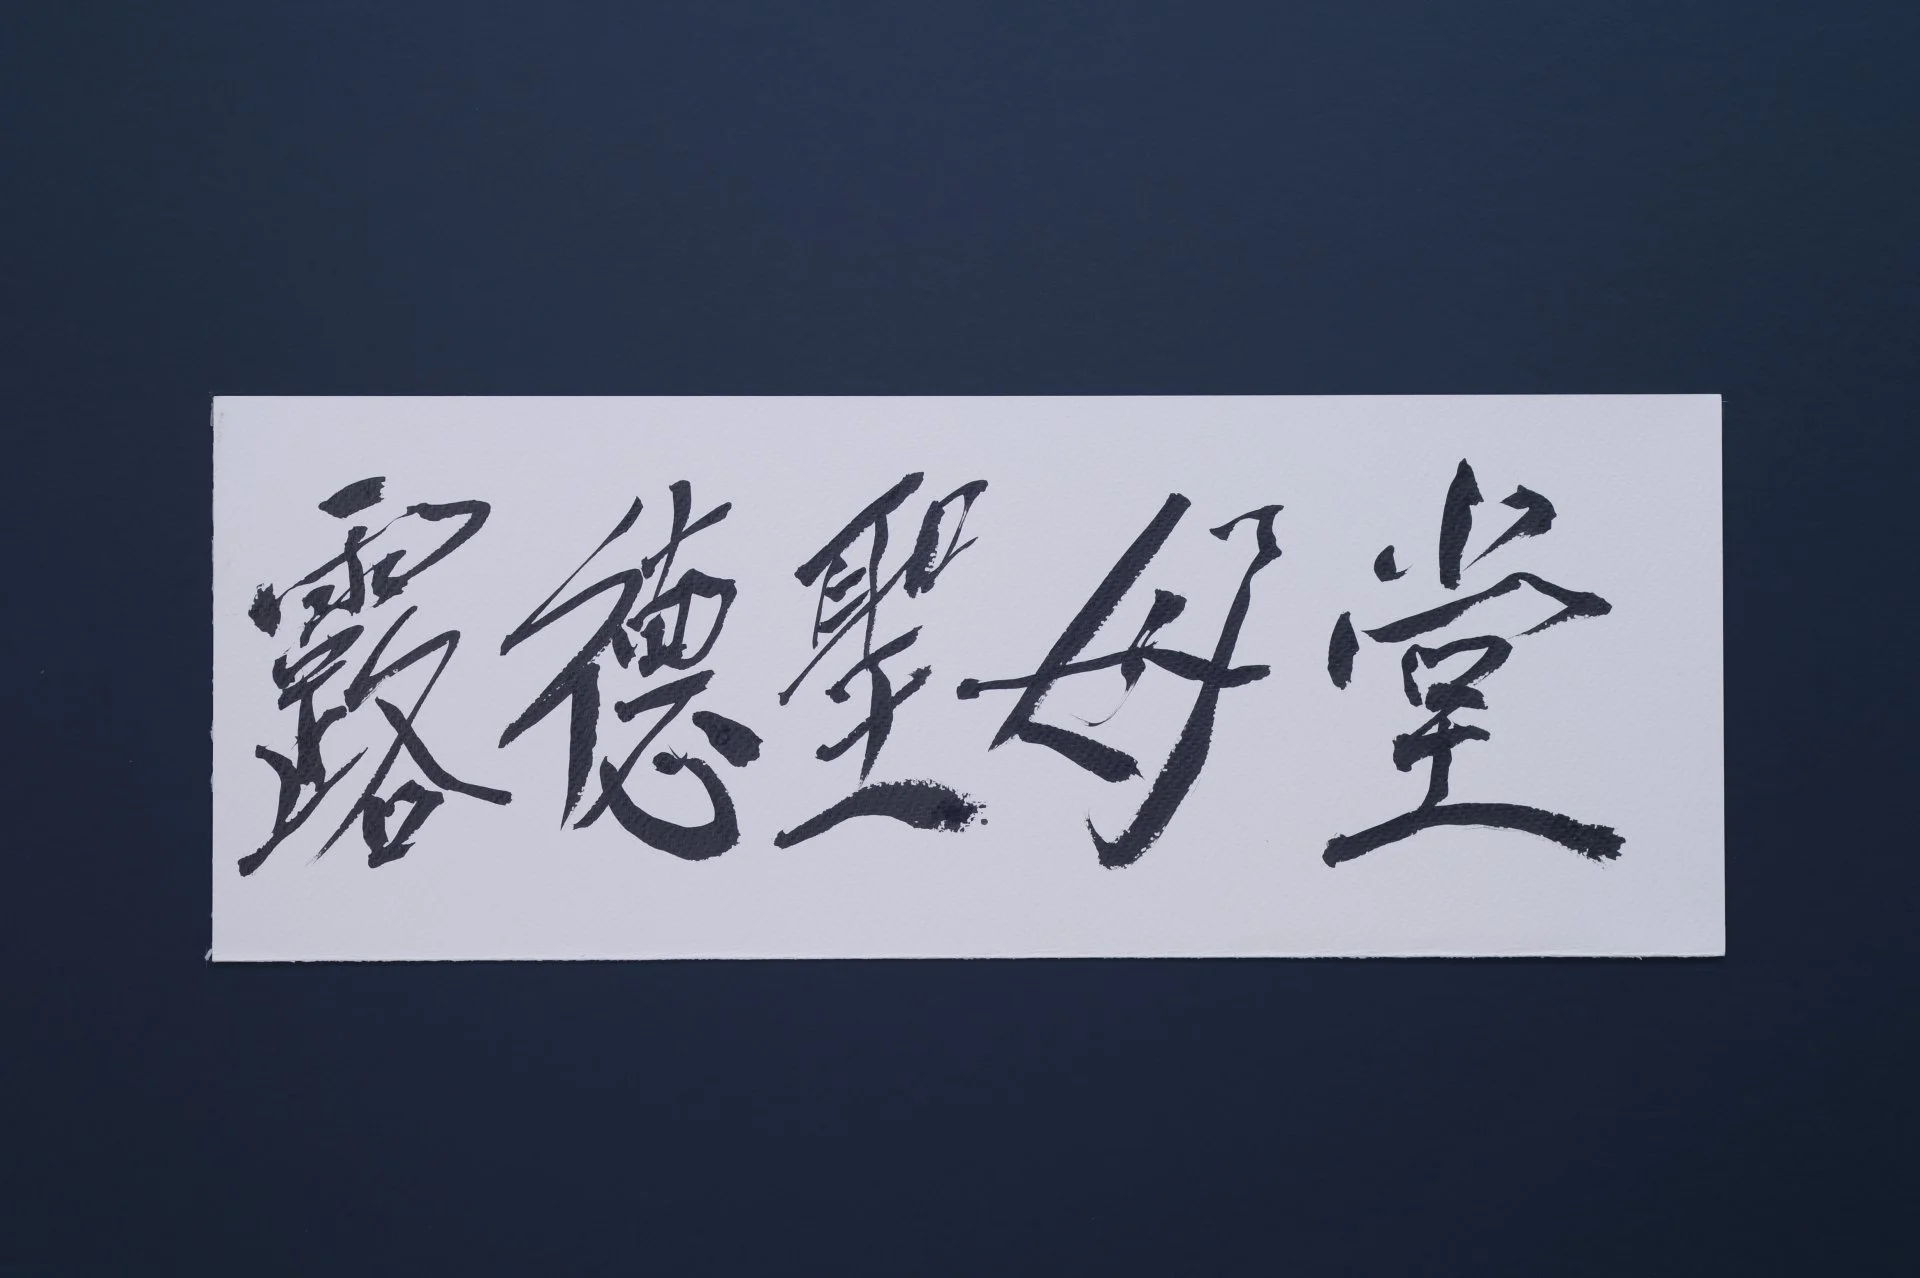 露德聖母堂